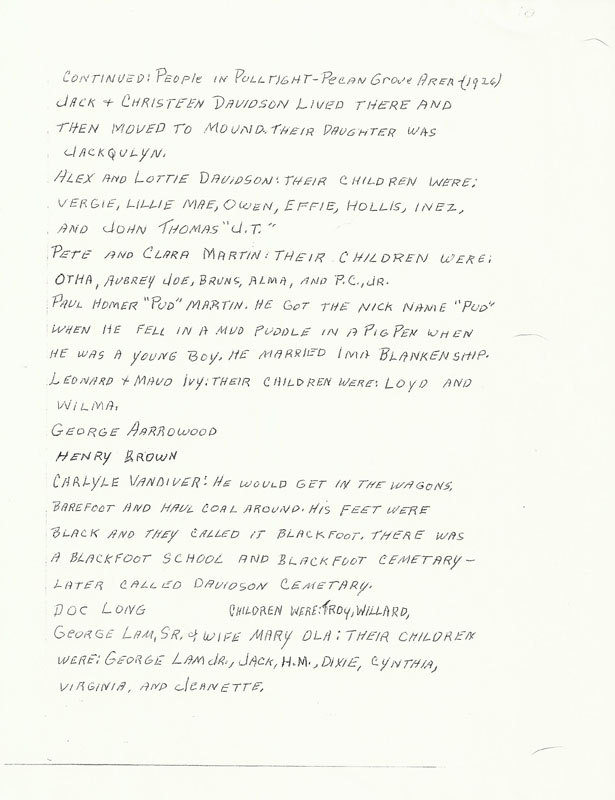 CONTINUED: PEOPLE IN PULLTIGHT-PECAN GROVE AREA (1926)
JACK + CHRISTEEN DAVIDSON LIVED THERE AND
THEN MOVED TO MOUND. THEIR DAUGHTER WAS
JACKQULYN.
ALEX AND LOTTIE DAVIDSON: THEIR CHILDREN WERE:
VERGIE, LILLIE MAE, OWEN, EFFIE, HOLLIS, INEZ,
AND JOHN THOMAS "J.T."
PETE AND CLARA MARTIN: THEIR CHILDREN WERE:
OTHA, AUBREY JOE, BRUNS, ALMA, AND P.C., JR.
PAUL HOMER "PUD" MARTIN. HE GOT THE NICK NAME "PUD"
WHEN HE FELL IN A MUD PUDDLE IN A PIG PEN WHEN
HE WAS A YOUNG BOY. HE MARRIED IMA BLANKENSHIP.
LEONARD + MAUD IVY: THEIR CHILDREN WERE: LOYD AND
WILMA.
GEORGE AARROWOOD
HENRY BROWN
CARLYLE VANDIVER: HE WOULD GET IN THE WAGONS,
BAREFOOT AND HAUL COAL AROUND. HIS FEET WERE
BLACK AND THEY CALLED IT BLACKFOOT. THERE WAS
A BLACKFOOT SCHOOL AND BLACKFOOT CEMETARY-
LATER CALLED DAVIDSON CEMETARY.
DOC LONG CHILDREN WERE: TROY, WILLARD,
GEORGE LAM, SR. & WIFE MARY OLA: THEIR CHILDREN
WERE: GEORGE LAM JR., JACK, H.M., DIXIE, CYNTHIA,
VIRGINIA, AND JEANETTE.